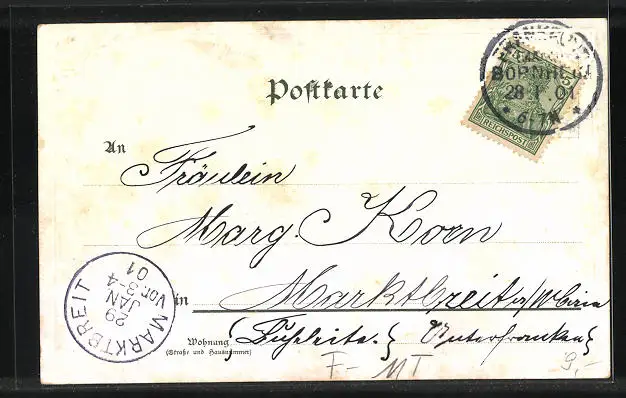 Postkarte
BORNHEIM
28.1.01
* 6-7N *
REICHSPOST
An
Fräulein
Marg. Korn
in Marktbreit
Wohnung
(Straße und Hausnummer)
Unterfranken
MARKTBREIT
29
JAN
VOR. 3-4
01
F- MT
9,-